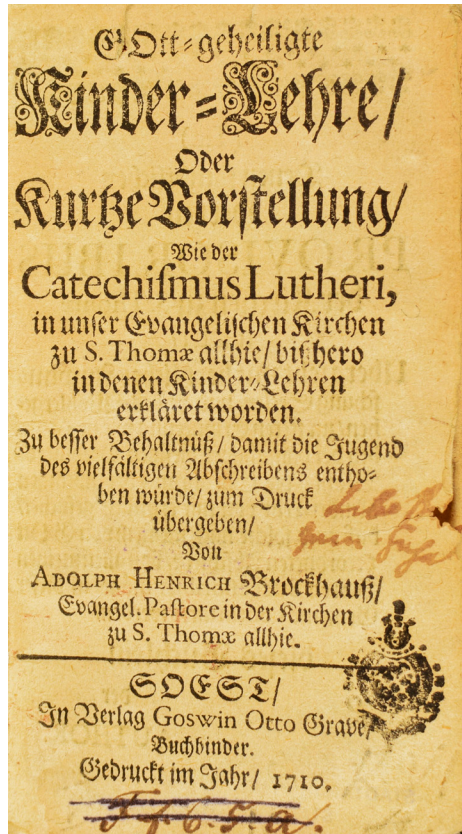 GOtt-geheiligte
Kinder-Lehre/
Oder
Kurtze Vorstellung/
Wie der
Catechismus Lutheri,
in unser Evangelischen Kirchen
zu S. Thomæ allhie/ bißhero
in denen Kinder-Lehren
erkläret worden.
Zu besser Behaltnüß/ damit die Jugend
des vielfältigen Abschreibens entho-
ben würde/ zum Druck
übergeben/
Von
ADOLPH HENRICH Brockhauß/
Evangel. Pastore in der Kirchen
zu S. Thomæ allhie.
SOEST/
In Verlag Goswin Otto Grave/
Buchbinder.
Gedruckt im Jahr/ 1710.